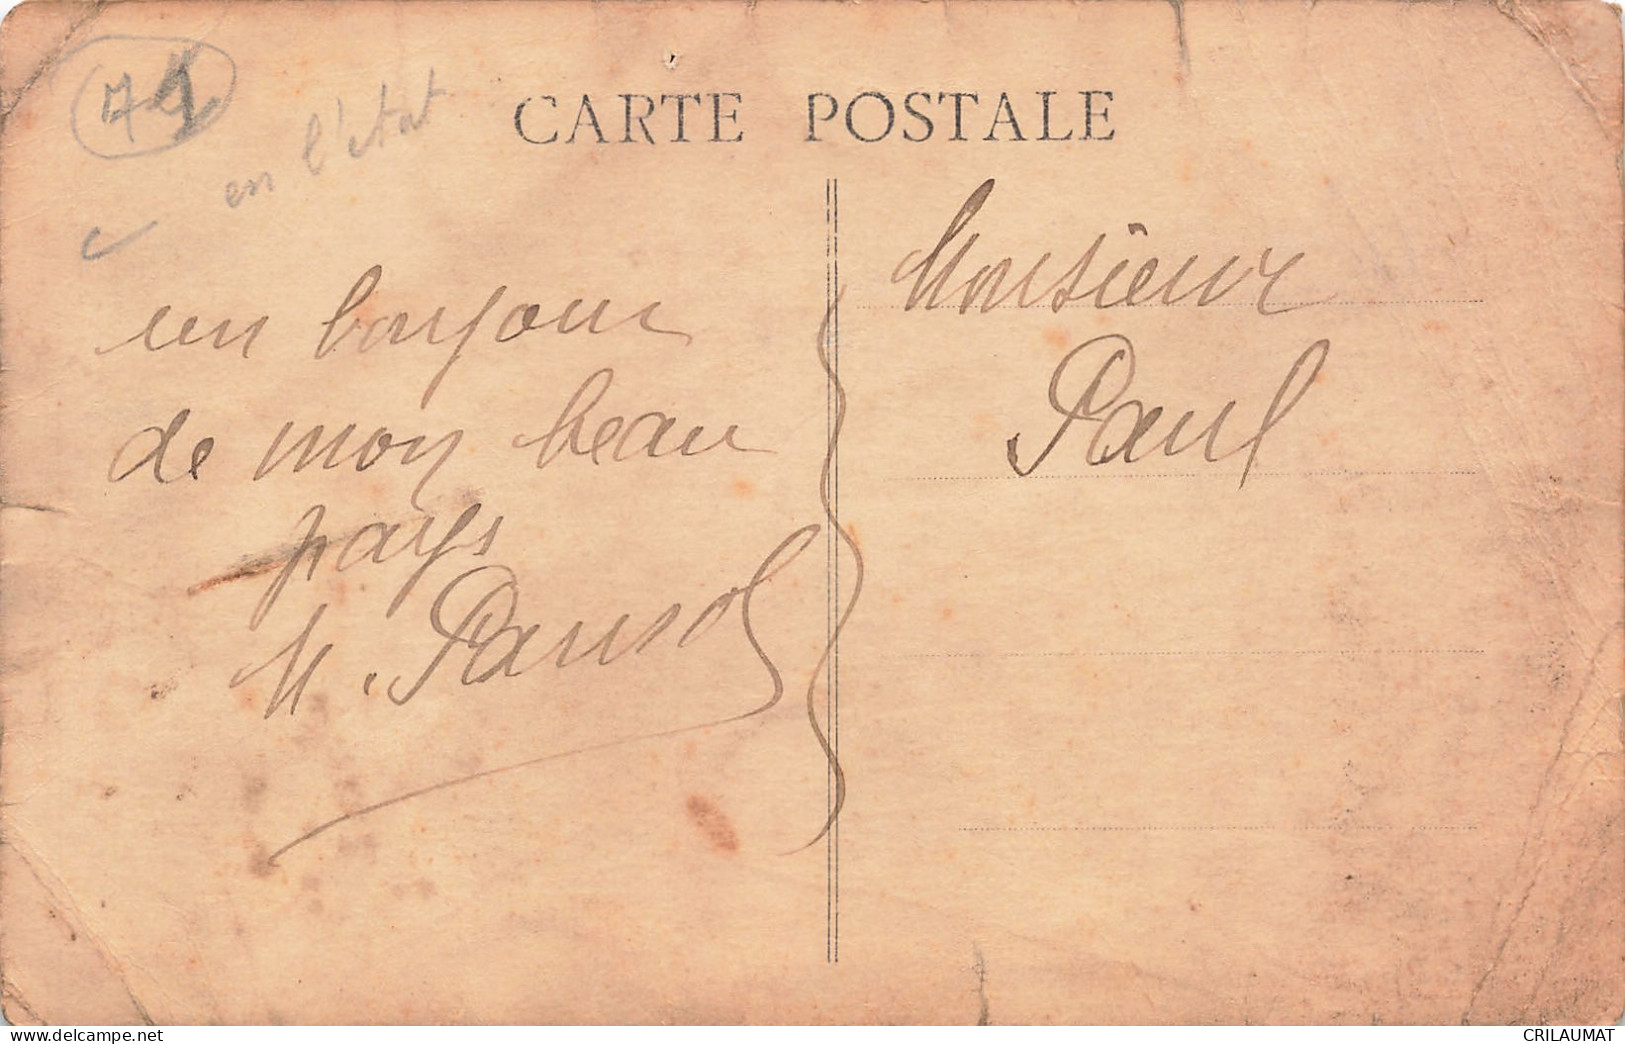 en l'état
CARTE POSTALE
un bonjour
de mon beau
pays
Monsieur
Paul
delcampe.net
CRILAUMAT